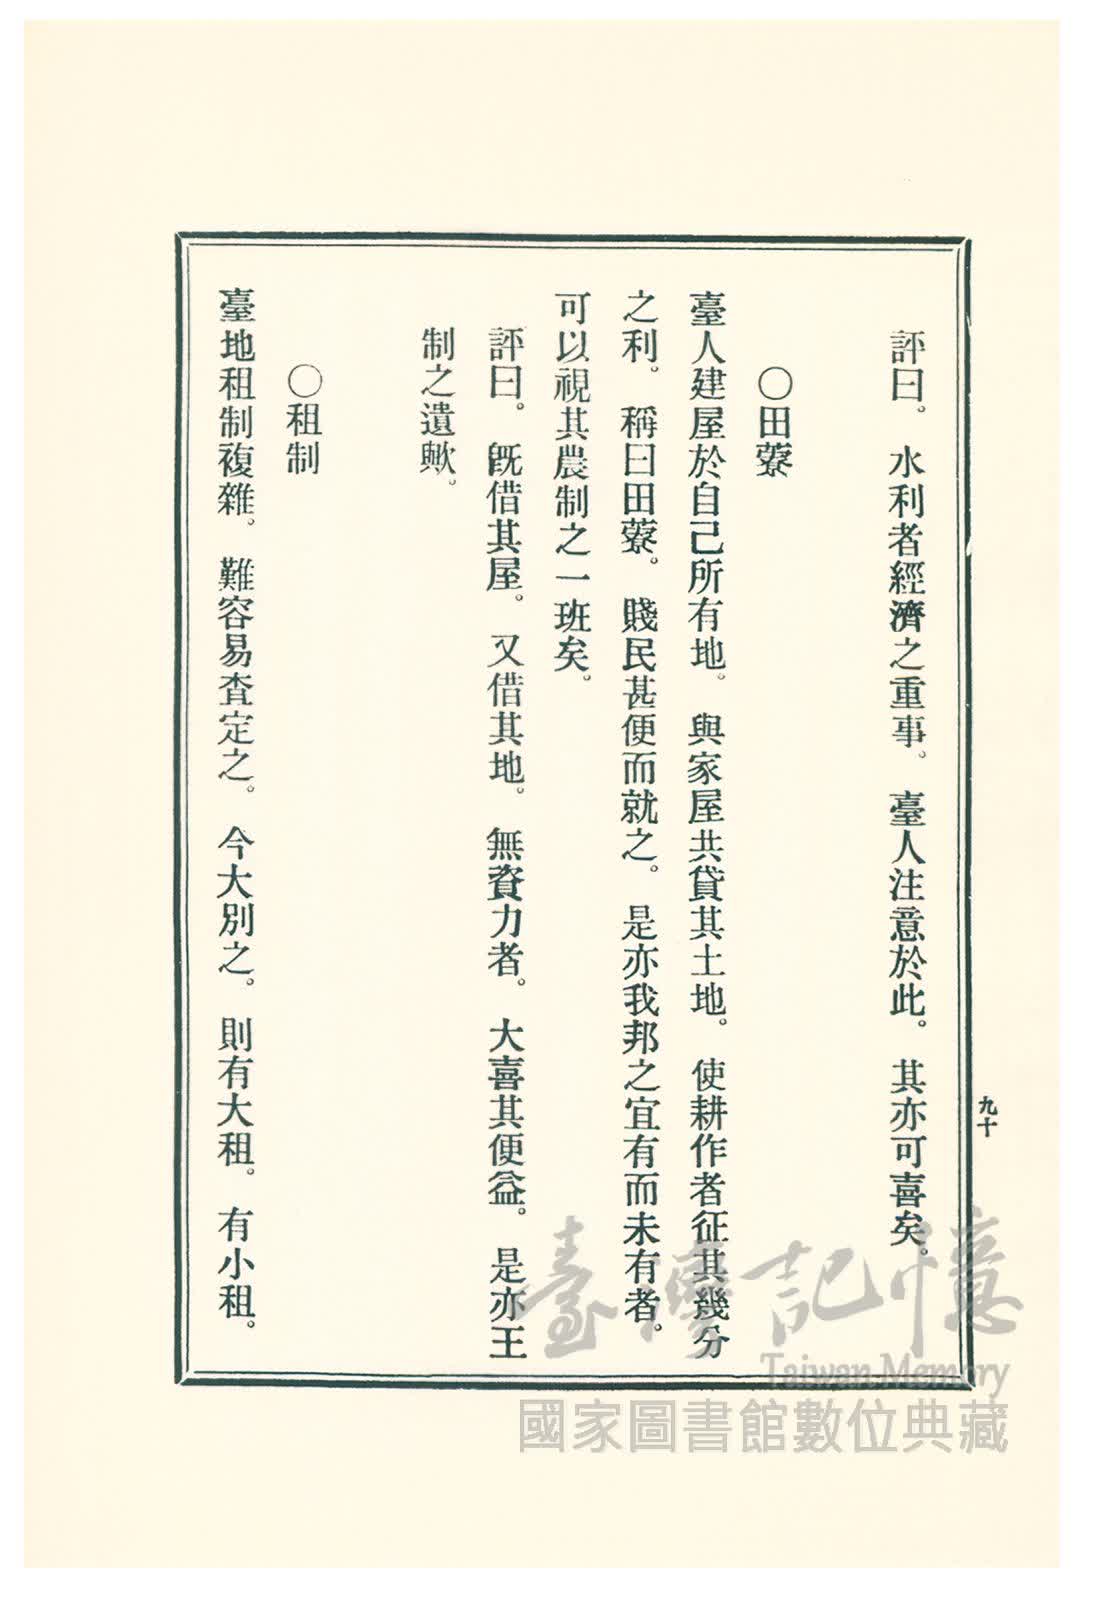 評曰。水利者經濟之重事。臺人注意於此。其亦可喜矣。
〇田藔
臺人建屋於自己所有地。與家屋共貸其土地。使耕作者征其幾分
之利。稱曰田藔。賤民甚便而就之。是亦我邦之宜有而未有者。
可以視其農制之一班矣。
評曰。既借其屋。又借其地。無資力者。大喜其便益。是亦王
制之遺歟。
〇租制
臺地租制複雜。難容易查定之。今大別之。則有大租。有小租。
九十
臺灣記憶
Taiwan Memory
國家圖書館數位典藏